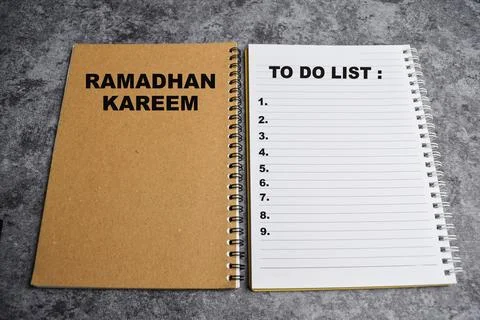 RAMADHAN
KAREEM
TO DO LIST :
1.
2.
3.
4.
5.
6.
7.
8.
9.